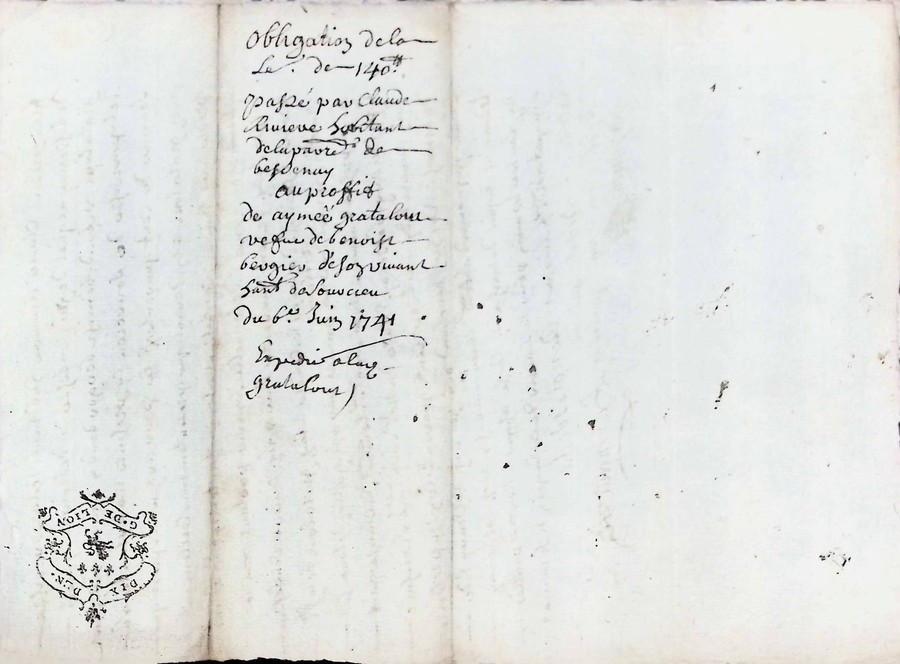 Obligation de la
Se. de 140tt
passé par Claude
Riviere habitant
de la parroe. de
bessenay
au proffit
de aymeé grataloup
vefue de benoist
bergier de son vivant
hant de Sourcieu
du 6e. Juin 1741
Expedié a lad.
grataloup
G. DE LION
DIX DEN.